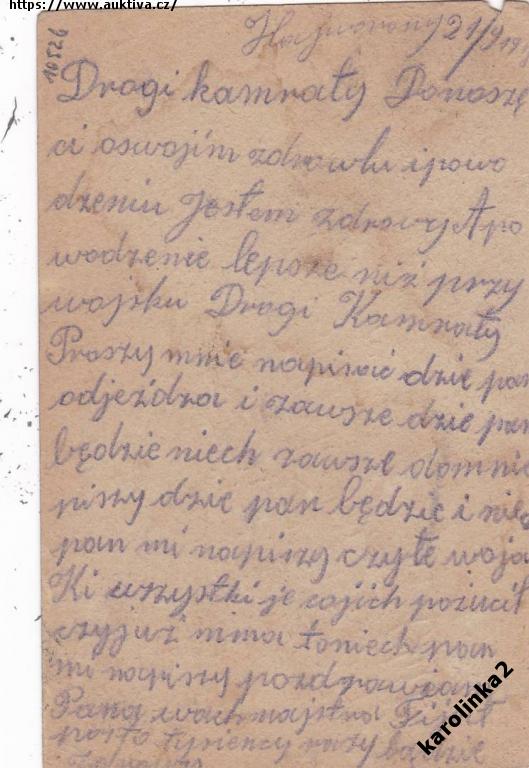 https://www.auktiva.cz/
10526
21/9 19
Drogi kamraty Donoszę
ci oswojim zdrowlu ipowo
dzeniu Jestem zdrowy Apo
wodzenie lepsze niż przy
wojsku Drogi Kamraty
Proszy mnie napisać dzie pan
odjeżdza i zawsze dzie pan
będzie niech zawsze domnie
piszy dzie pan będzie i niech
pan mi napiszy czyte woja
Ki wszystki je cojich pożucił
czyjuż nima toniech pan
mi napiszy pozdrawiam
Pana wachmajstra
tysiency razy bądzie
karolinka2